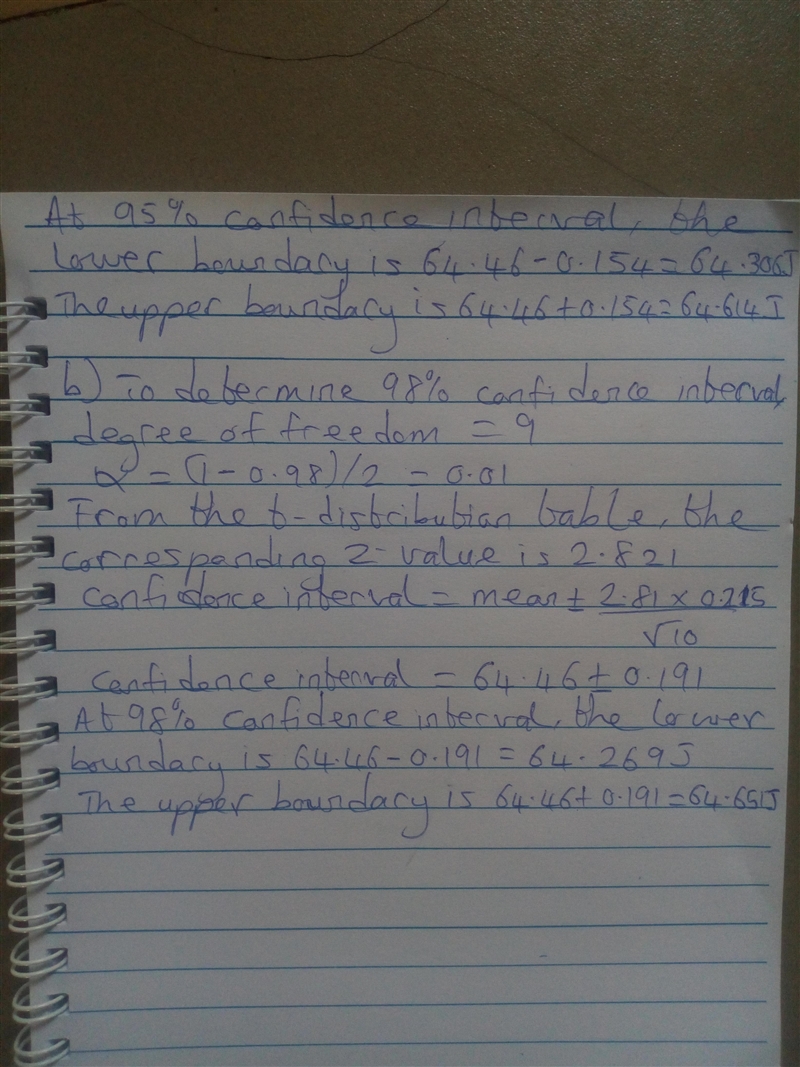 At 95% confidence interval, the
lower boundary is 64.46 - 0.154 = 64.306J
The upper boundary is 64.46 + 0.154 = 64.614 J
b) To determine 98% confidence interval,
degree of freedom = 9
α = (1 - 0.98)/2 = 0.01
From the t-distribution table, the
corresponding z-value is 2.821
Confidence interval = mean ± 2.81 × 0.215
√10
Confidence interval = 64.46 ± 0.191
At 98% confidence interval, the lower
boundary is 64.46 - 0.191 = 64.269J
The upper boundary is 64.46 + 0.191 = 64.651J